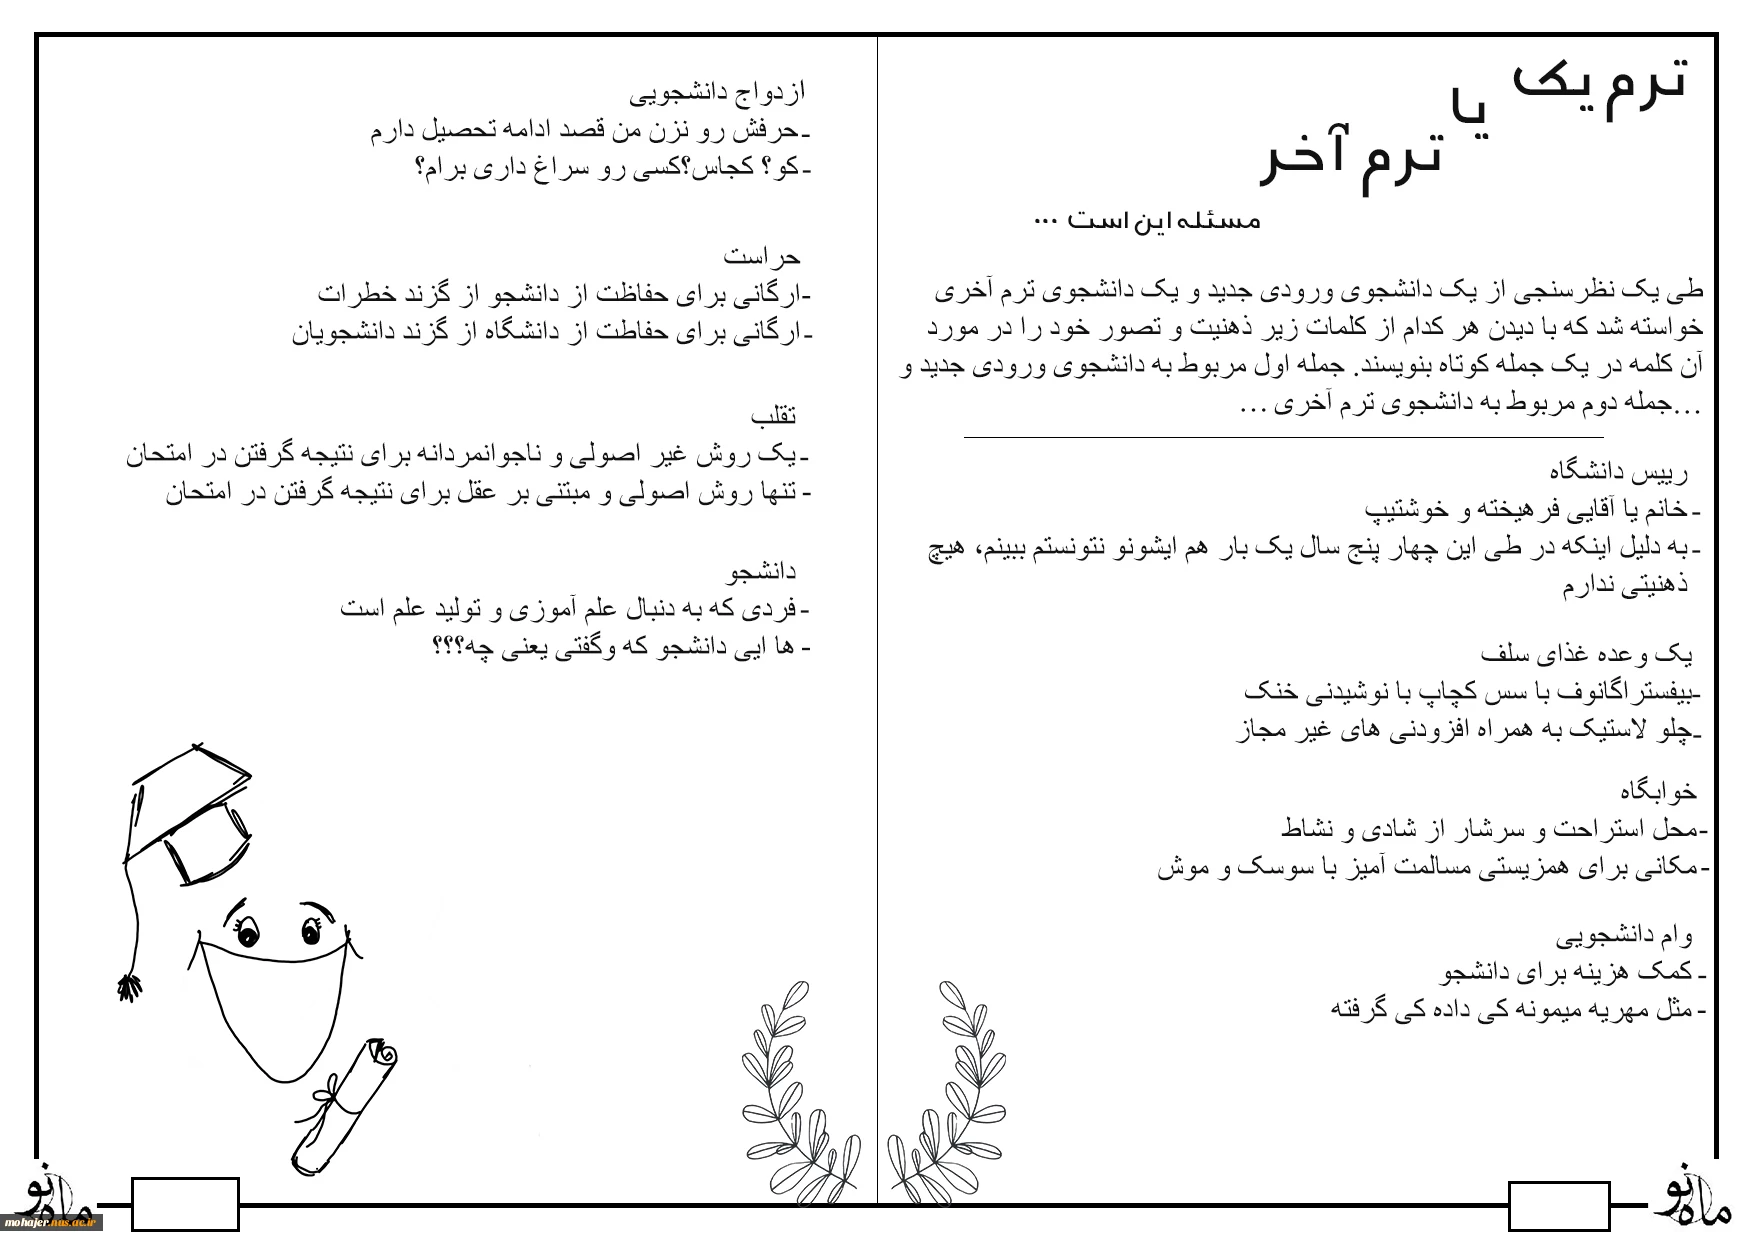 ترم یک
یا
ترم آخر
مسئله این است ...
طی یک نظرسنجی از یک دانشجوی ورودی جدید و یک دانشجوی ترم آخری
خواسته شد که با دیدن هر کدام از کلمات زیر ذهنیت و تصور خود را در مورد
آن کلمه در یک جمله کوتاه بنویسند. جمله اول مربوط به دانشجوی ورودی جدید و
...جمله دوم مربوط به دانشجوی ترم آخری ...
رییس دانشگاه
- خانم یا آقایی فرهیخته و خوشتیپ
- به دلیل اینکه در طی این چهار پنج سال یک بار هم ایشونو نتونستم ببینم، هیچ
ذهنیتی ندارم
یک وعده غذای سلف
-بیفستراگانوف با سس کچاپ با نوشیدنی خنک
-چلو لاستیک به همراه افزودنی های غیر مجاز
خوابگاه
-محل استراحت و سرشار از شادی و نشاط
- مکانی برای همزیستی مسالمت آمیز با سوسک و موش
وام دانشجویی
- کمک هزینه برای دانشجو
- مثل مهریه میمونه کی داده کی گرفته
ازدواج دانشجویی
-حرفش رو نزن من قصد ادامه تحصیل دارم
- کو؟ کجاس؟کسی رو سراغ داری برام؟
حراست
-ارگانی برای حفاظت از دانشجو از گزند خطرات
- ارگانی برای حفاطت از دانشگاه از گزند دانشجویان
تقلب
- یک روش غیر اصولی و ناجوانمردانه برای نتیجه گرفتن در امتحان
- تنها روش اصولی و مبتنی بر عقل برای نتیجه گرفتن در امتحان
دانشجو
- فردی که به دنبال علم آموزی و تولید علم است
- ها ایی دانشجو که وگفتی یعنی چه؟؟؟
ماه نو
ماه نو
mohajer.nus.ac.ir